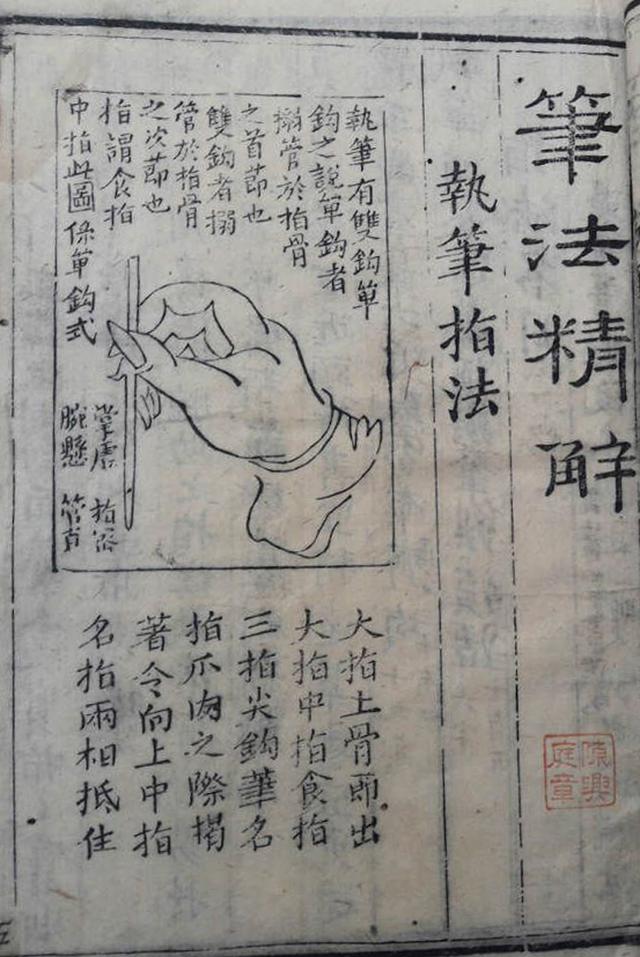 筆法精解
執筆指法
執筆有雙鈎單
鈎之說單鈎者
搦管於指骨
之首節也
雙鈎者搦
管於指骨
之次節也
指謂食指
中指此圖係單鈎式
掌虛 指密
腕懸 管直
大指上骨節出
大指中指食指
三指尖鈎筆名
指爪肉之際揭
著令向上中指
名指兩相抵住
陳興
庭章